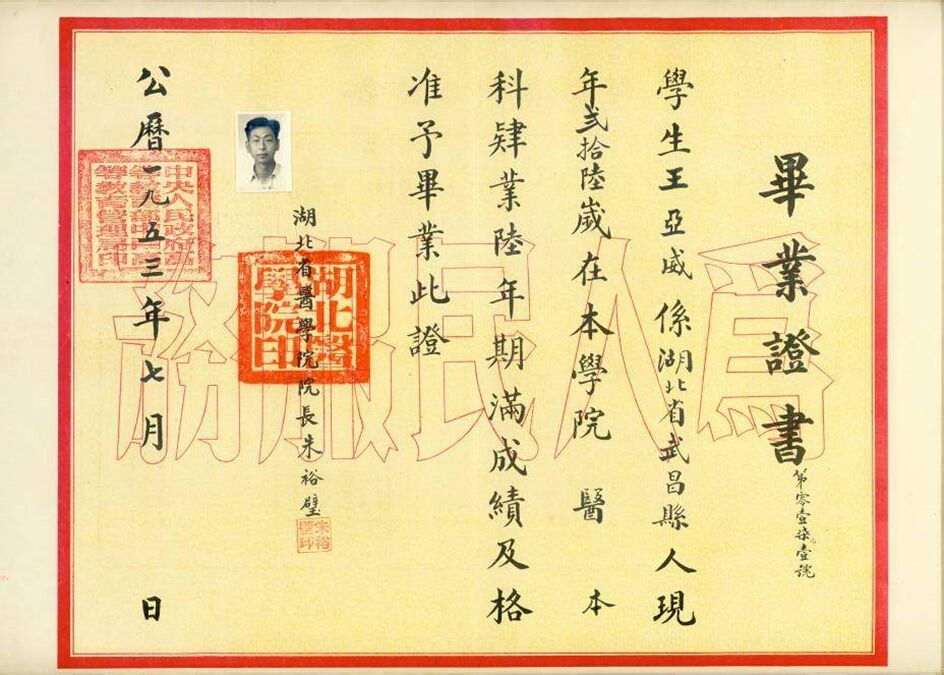 畢業證書
第零壹柒壹號
學生王亞威係湖北省武昌縣人現
年弍拾陸歲在本學院 醫 本
科肄業陸年期滿成績及格
准予畢業此證
湖北省醫學院院長朱裕璧
朱裕璧印
湖北醫學院印
公曆一九五三年七月 日
中央人民政府高等教育部中南高等教育管理局印
爲人民服務